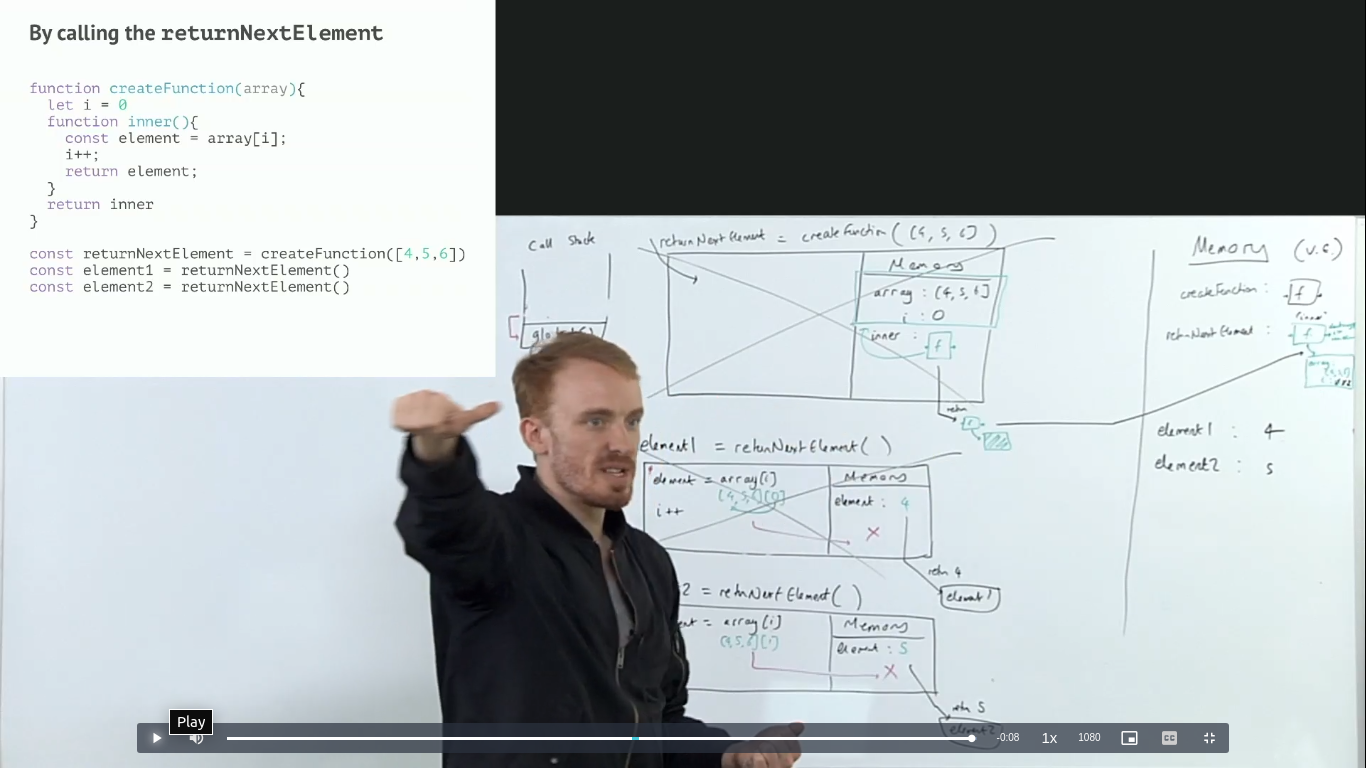 By calling the returnNextElement
function createFunction(array){
let i = 0
function inner(){
const element = array[i];
i++;
return element;
}
return inner
}
const returnNextElement = createFunction([4,5,6])
const element1 = returnNextElement()
const element2 = returnNextElement()
Call Stack
returnNextElement = createFunction ([4, 5, 6])
Memory
array : [4, 5, 6]
i : 0
inner : f
return
element1 = returnNextElement( )
element = array[i]
[4,5,6][0]
i++
Memory
element : 4
retn 4
element1
2 = retnNextElement( )
= array[i]
[4,5,6][1]
Memory
element : 5
retn 5
element2
Memory (v.e.)
createFunction : f
returnNextElement : f
element1 : 4
element2 : 5
Play
-0:08
1x
1080
CC